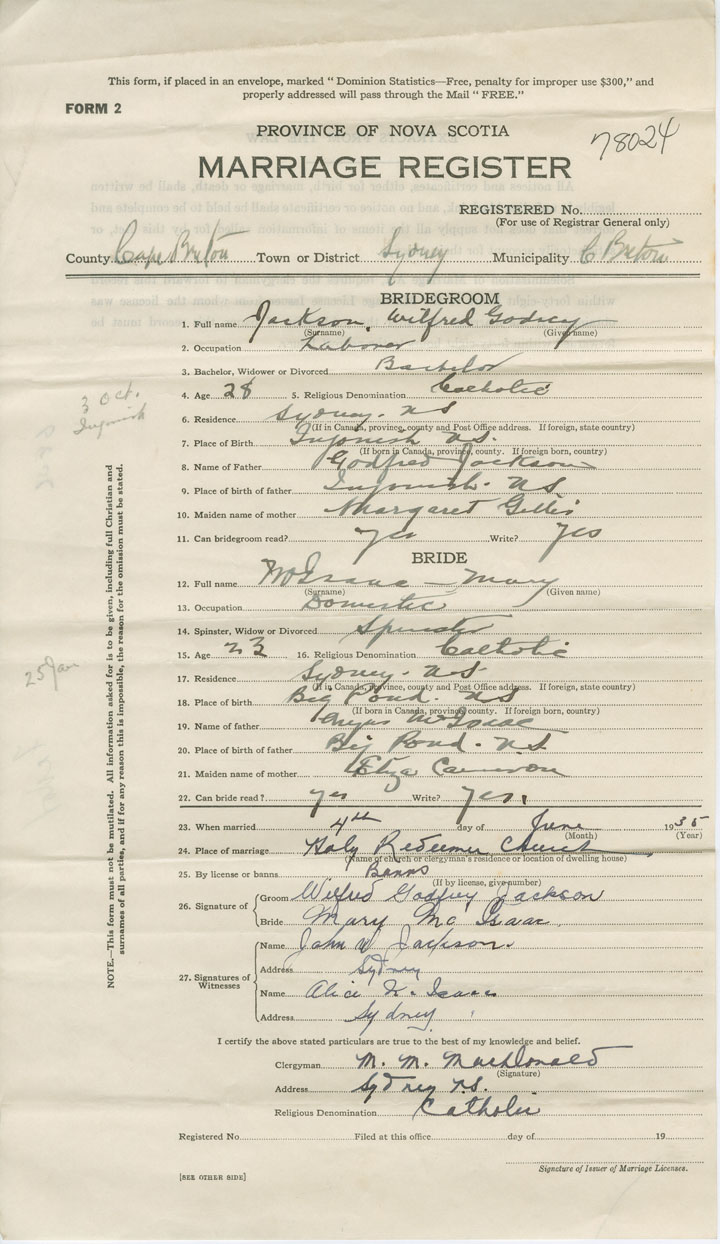 This form, if placed in an envelope, marked " Dominion Statistics—Free, penalty for improper use $300," and
properly addressed will pass through the Mail " FREE."
FORM 2
PROVINCE OF NOVA SCOTIA
78024
MARRIAGE REGISTER
REGISTERED No.
(For use of Registrar General only)
County Cape Breton Town or District Sydney Municipality C Breton
BRIDEGROOM
1. Full name Jackson, Wilfred Godfrey
(Surname) (Given name)
2. Occupation Laborer
3. Bachelor, Widower or Divorced Bachelor
4. Age 28 5. Religious Denomination Catholic
3 Oct.
Ingonish
6. Residence Sydney. NS
(If in Canada, province, county and Post Office address. If foreign, state country)
7. Place of Birth Ingonish N.S.
(If born in Canada, province, county. If foreign born, country)
8. Name of Father Godfred Jackson
9. Place of birth of father Ingonish. NS
10. Maiden name of mother Margaret Gillis
11. Can bridegroom read? yes Write? yes
BRIDE
12. Full name McIsaac — Mary
(Surname) (Given name)
13. Occupation Domestic
14. Spinster, Widow or Divorced Spinster
15. Age 23 16. Religious Denomination Catholic
25 Jan
17. Residence Sydney. NS
(If in Canada, Province, county and Post Office address. If foreign, state country)
18. Place of birth Big Pond. NS
(If born in Canada, province, county. If foreign born, country)
19. Name of father Angus McIsaac
20. Place of birth of father Big Pond. N.S
21. Maiden name of mother Eliza Cameron
22. Can bride read? yes Write? yes.
23. When married 4th day of June 1935
(Month) (Year)
24. Place of marriage Holy Redeemer Church
(Name of church or clergyman's residence or location of dwelling house)
25. By license or banns Banns
(If by license, give number)
26. Signature of Groom Wilfred Godfrey Jackson
Bride Mary Mc Isaac
27. Signatures of Witnesses
Name John W Jackson.
Address Sydney
Name Alice
Address Sydney
I certify the above stated particulars are true to the best of my knowledge and belief.
Clergyman M. M. MacDonald
(Signature)
Address Sydney N.S.
Religious Denomination Catholic
Registered No. Filed at this office day of 19
Signature of Issuer of Marriage Licenses.
[SEE OTHER SIDE]
NOTE.—This form must not be mutilated. All information asked for is to be given, including full Christian and
surnames of all parties, and if for any reason this is impossible, the reason for the omission must be stated.